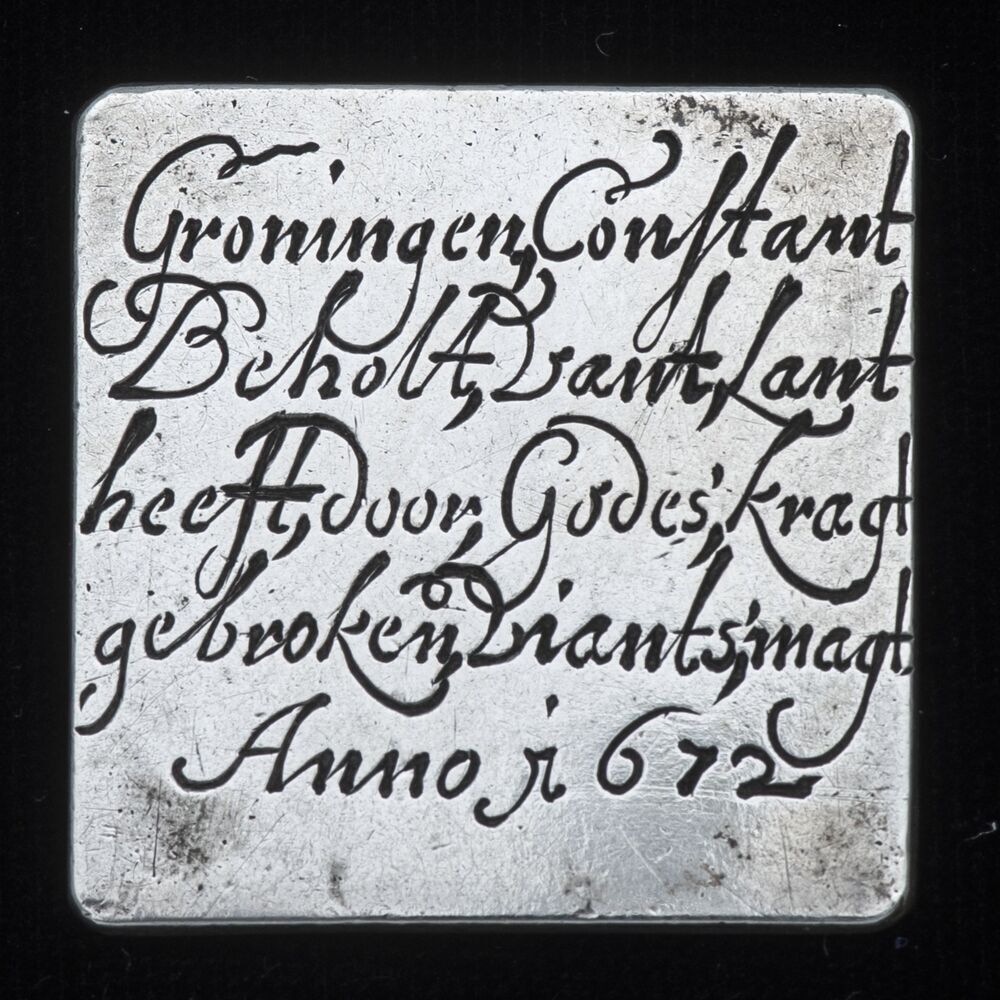 Groningen, Constant
Beholt, Vant, Lant
heeft, door, Godes, kragt
gebroken, Viants, magt
Anno 1672